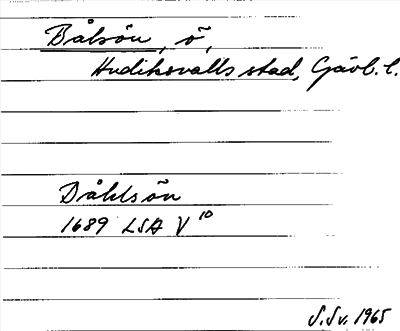 Bålsön, ö,
Hudiksvalls stad, Gävl. l.
Dåhlsön
1689 LSA V 10
S.Sv. 1965